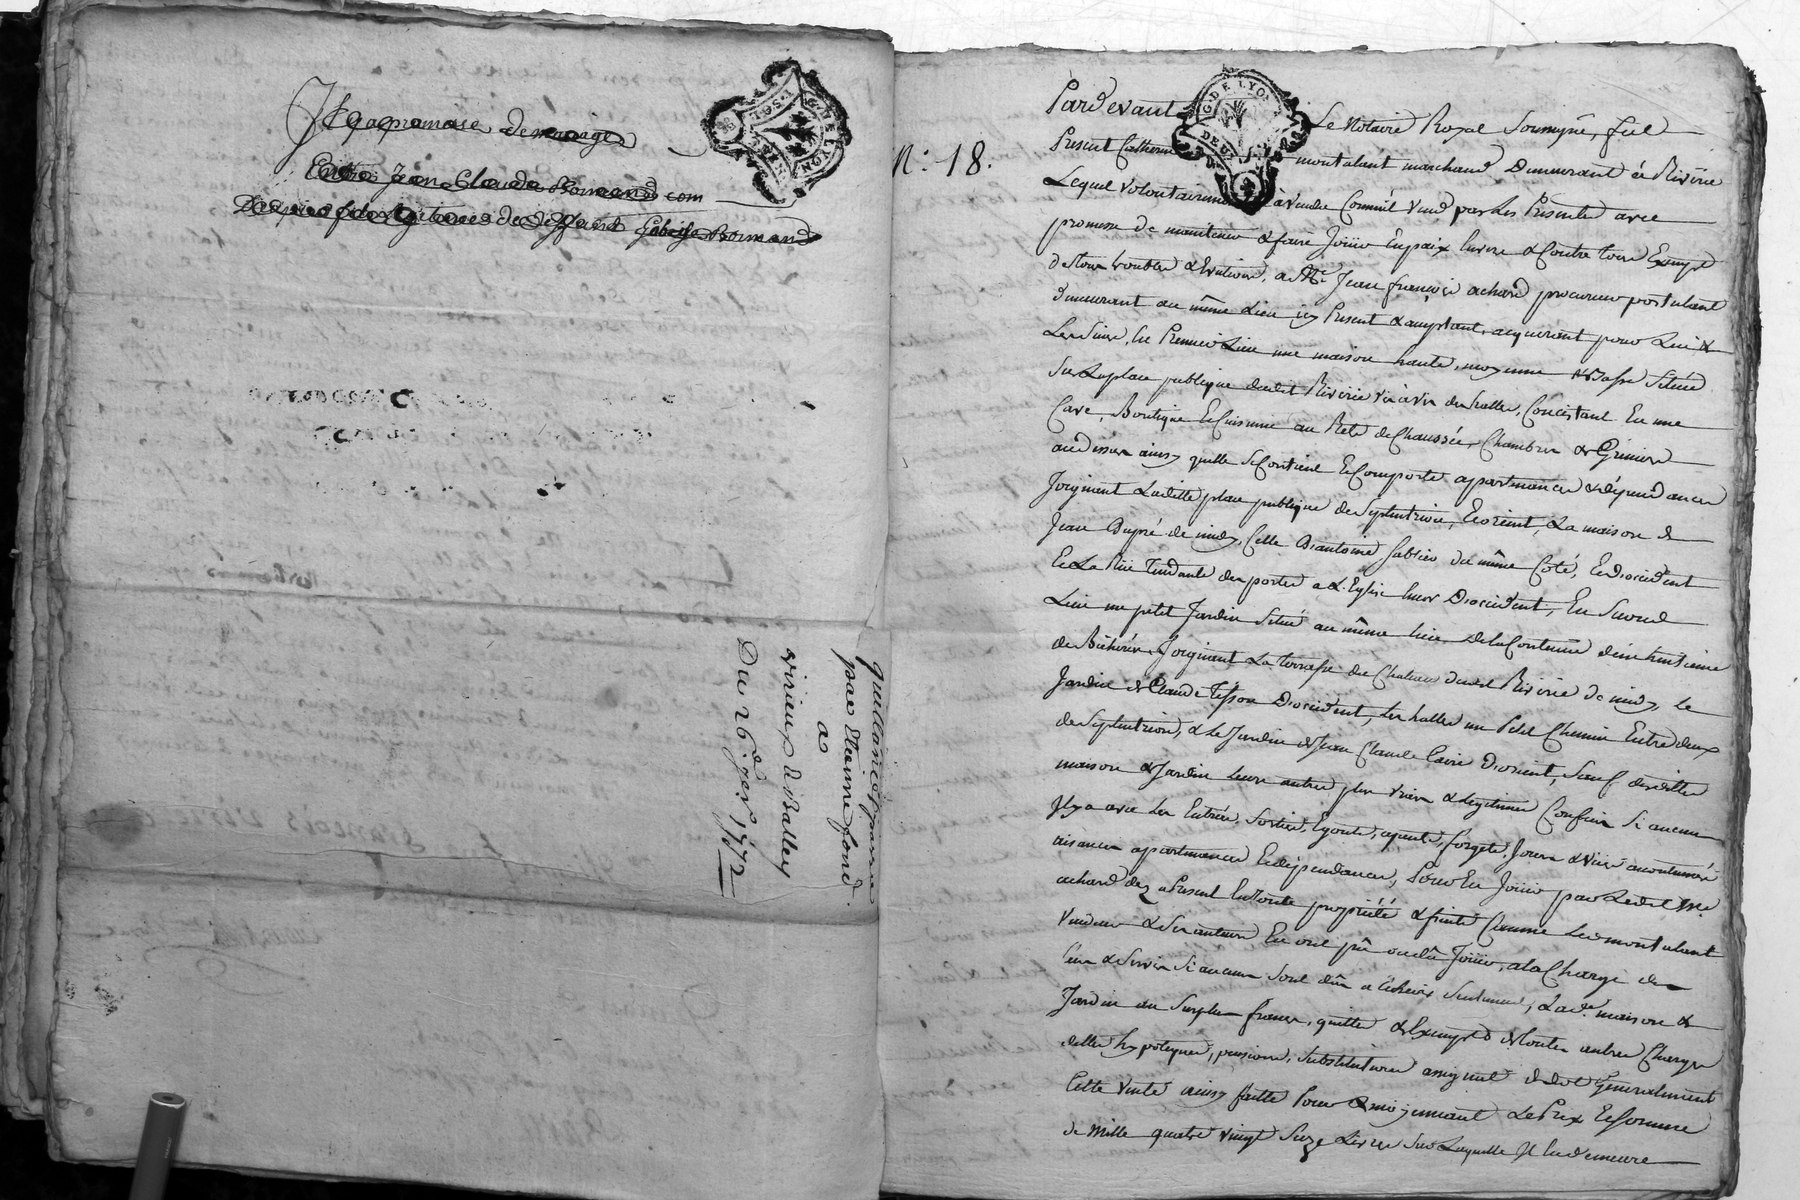 Il ya promaise de mariage
Entre Jean Claude Romand com
Gabrielle Romand
quittance passée
par Etienne fond
a
virieux & Balley
Du 26.e 1772
G. DE LYON
N.° 18.
Pardevant Le Notaire Royal Soussigné, fut
Present Catherin montalant marchand Demeurant à Riverie
Lequel volontairement à vendu Comme il vend par Les Presentes avec
promesse de maintenir & faire Joüir En paix Envers & Contre tous Exempt
de tous troubles & Evictions, a Me Jean françois achard procureur postulant
demeurant au même Lieu icy Present & acceptant, acquerant pour Lui &
Les Siens, En Premier Lieu une maison haute, moyenne & Basse Située
Sur La place publique dudit Riverie vis à vis des halles, Concistant En une
Cave, Boutique Et Cuisinne au Rets de Chaussée, Chambres & Greniers
au dessus ainsy quelle Se Contient Et Comporte appartenances & dépendances
Joignant Laditte place publique de Septentrion, Et orient, La maison de
Jean Dupré de midy, Celle D'antoine du même Coté, Et D'occident
Et La Rüe Tendante des portes a L'Eglise Encor D'occident, En Second
Lieu un petit Jardin Situé au même lieu de la Contenue d'un huitieme
de Bicherée, Joignant La terrasse du Chateau dudit Riverie de midy, Le
Jardin de Claude Tisson D'occident, Les halles un Petit Chemin Entre deux
de Septentrion, & Le Jardin de Jean Claude D'orient, Sauf desdittes
maison & Jardin Leurs autres plus vrais & Legitimes Confins Si aucuns
Il y a avec Les Entrées, Sorties, Egouts, Jours & vües accoutumés
aisances appartenances Et dependances, Pour En Joüir par Ledit Me
achard dez a Present En toute propriété & fruits Comme Led montalant
vendeur & Ses auteurs En ont pû ou dû Joüir, a la Charge des
Cens & Servis Si aucuns Sont dûs a Echeoir Seulement, Lad.e maison &
Jardin au Surplus francs, quittes & Exempts de toutes autres Charges
dettes hypoteques, pensions, Substitutions Et Generalement
Cette vente ainsy faitte Pour & moyennant Le Prix Et Somme
de Mille quatre vingt Seize Livres Sur Laquelle Il En demeure